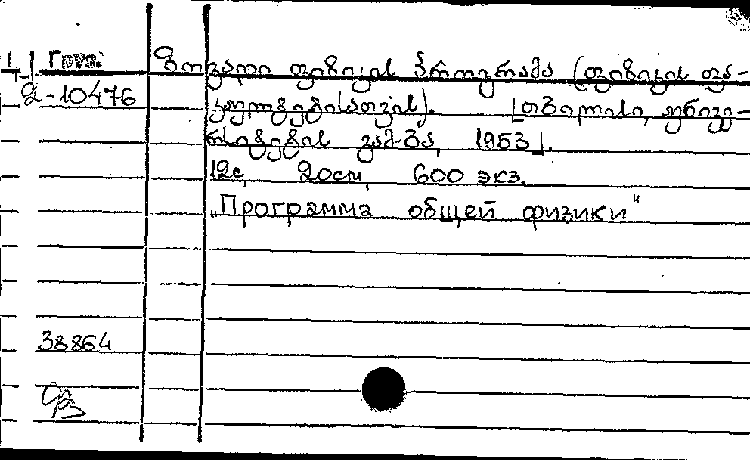 Груз.
ზოგადი ფიზიკის პროგრამა (ფიზიკის ფა-
2-10476
კულტეტისათვის). [თბილისი, უნივე-
რსიტეტის გამ-ბა, 1953].
12с, 20см, 600 экз.
„Программа общей физики"
38864